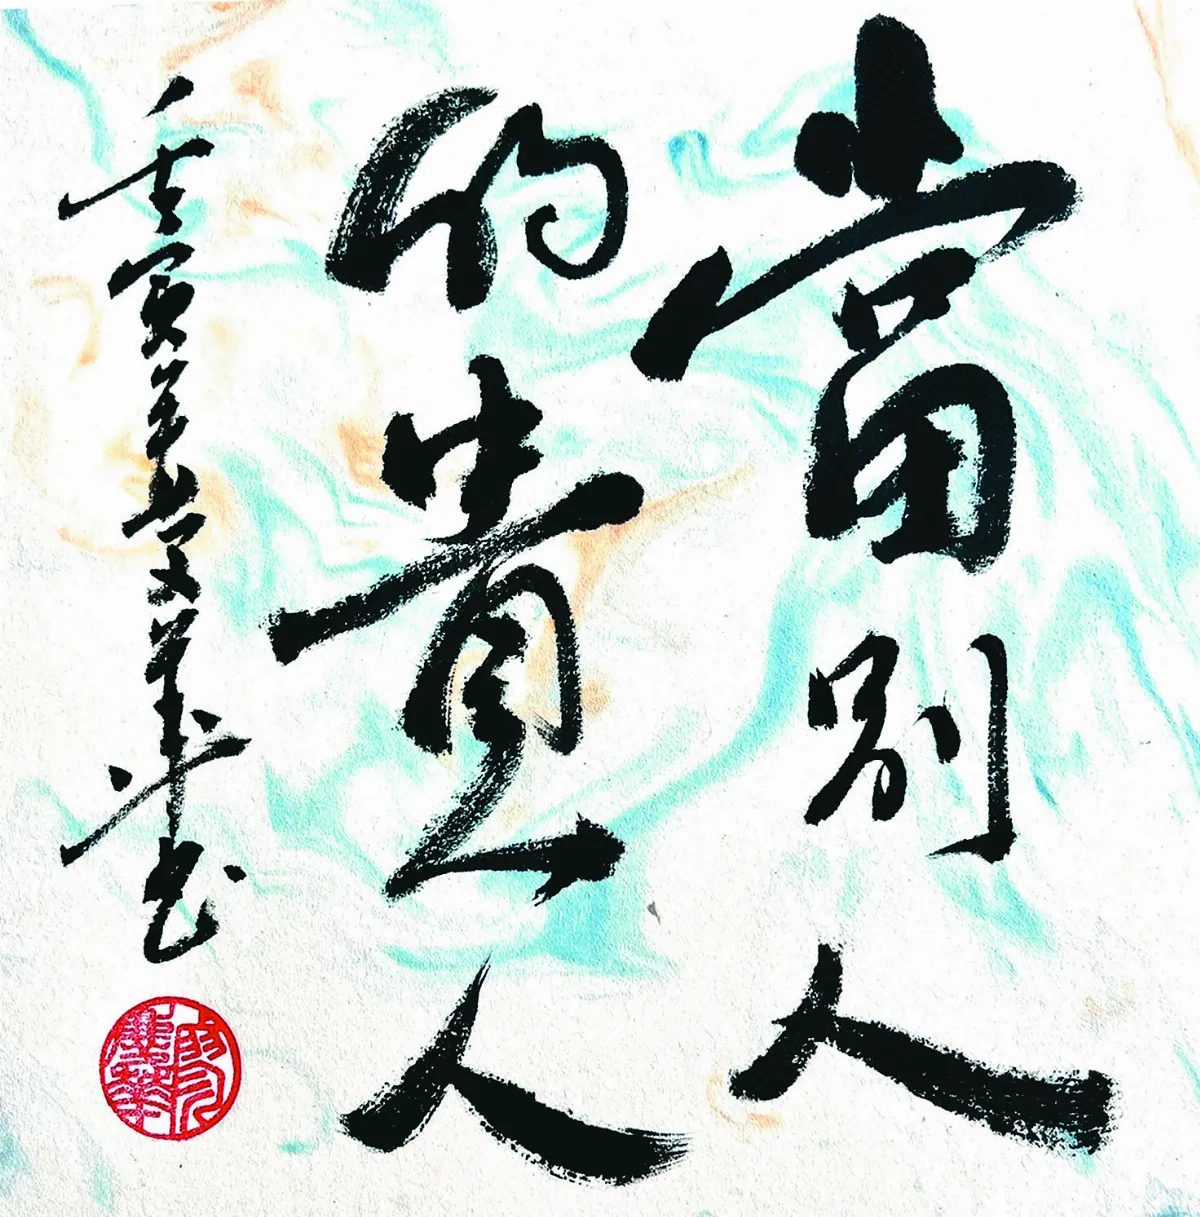 當別人
的貴人
壬寅年